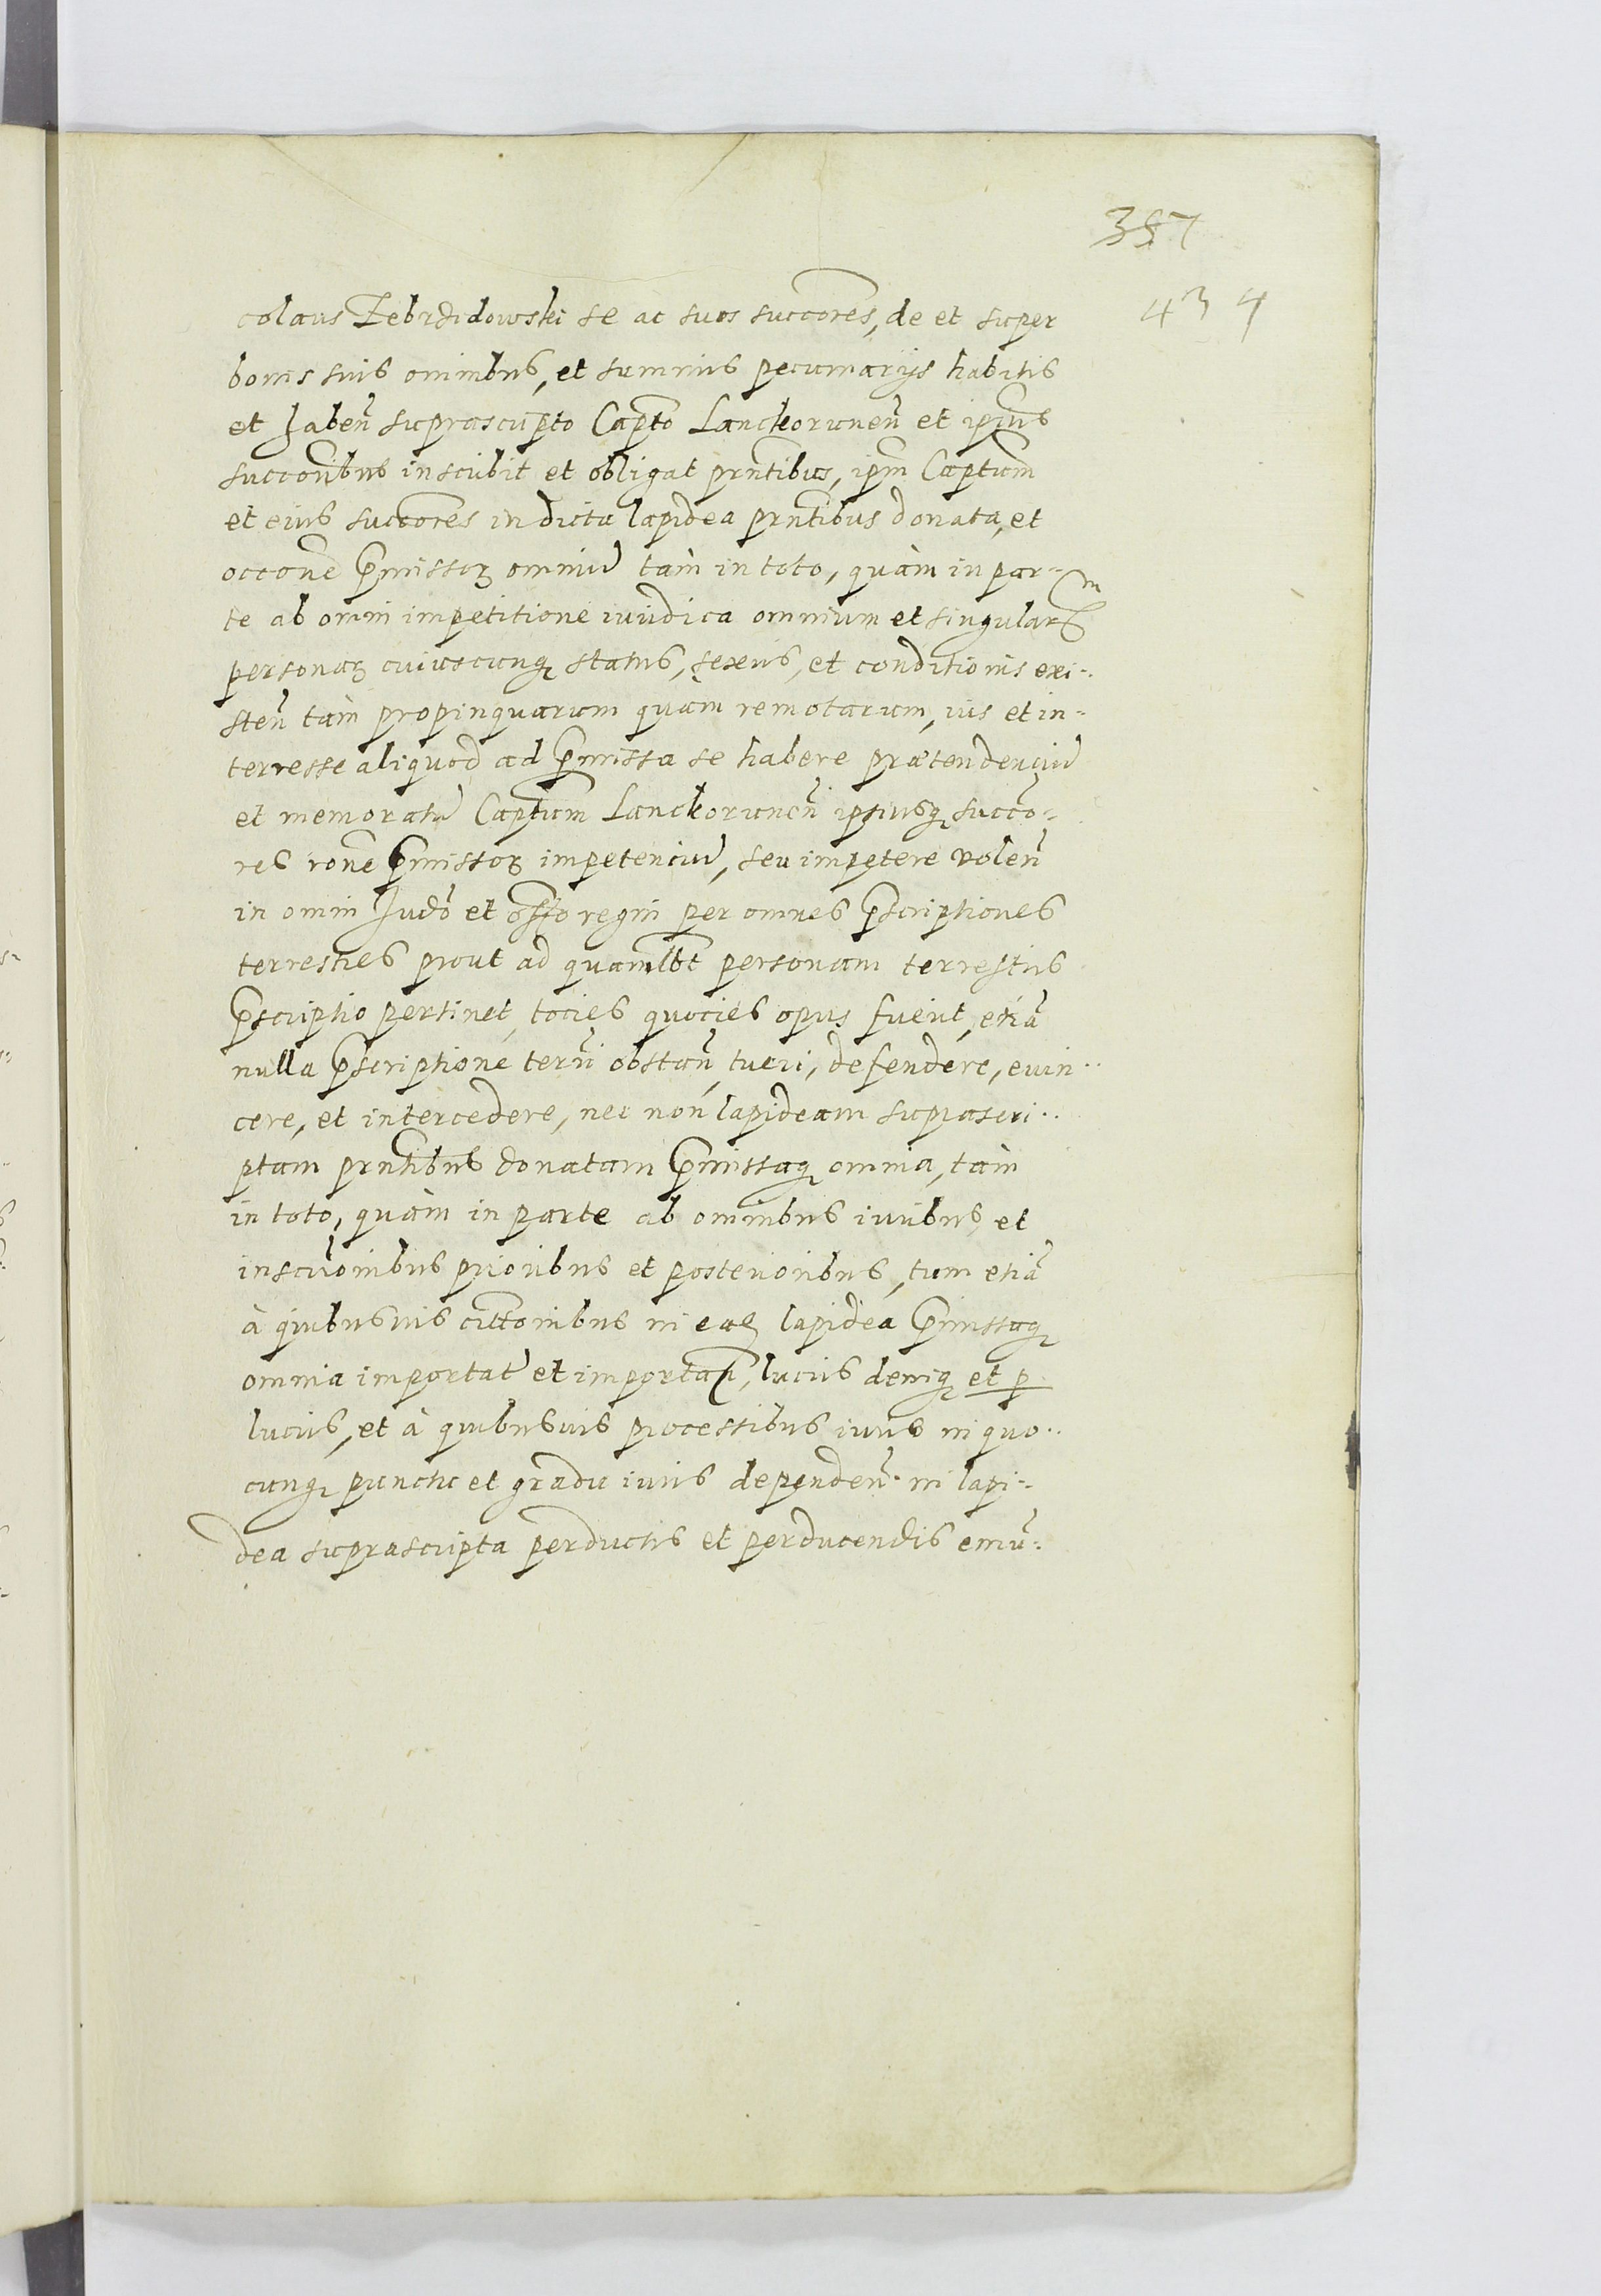 387
434
colaus Zebrzidowski se ac suos succores, de et super
bonis suis omnibus, et summis pecuniarijs habitis
et haben̄ suprascripto Capto Lanckorunen̄ et ipius
succoribus inscribit et obligat prntibus, ipm Captum
et eius succores in dicta lapidea prntibus donata, et
occone p̄missorꝫ omniū tàm in toto, quàm in par-
te ab omni impetitione iuridica omnium et singularum
personarꝫ cuiuscunqꝫ status, sexus, et conditionis exi-
sten̄ tàm propinquarum quàm remotarum, ius et in-
terresse aliquod ad p̄missa se habere prætendenciū
et memoratū Captum Lanckorunen̄ ipsiusqꝫ succo-
res rone p̄missorꝫ impetenciū, seu impetere volen̄
in omni Judō et offo regni per omnes p̄scriptiones
terrestres prout ad quamlbt personam terrestris
p̄scriptio pertinet, tocies quocies opus fuerit, etiā
nulla p̄scriptione terrī obstan̄, tueri, defendere, evin-
cere, et intercedere, nec non lapideam suprascri-
ptam prntibus donatam p̄missaqꝫ omnia, tàm
in toto, quàm in parte ab omnibus iuribus, et
inscrōnibus prioribus et posterioribus, tum etiā
à quibusvis cittonibus in eaꝫ lapidea p̄missaqꝫ
omnia importat̄ et importan̄, lucris deniqꝫ et p̱
lucris, et à quibusvis processibus iuris in quo-
cunqꝫ puncto et gradu iuris dependen̄ in lapi-
dea suprascripta perductis et perducendis emū-